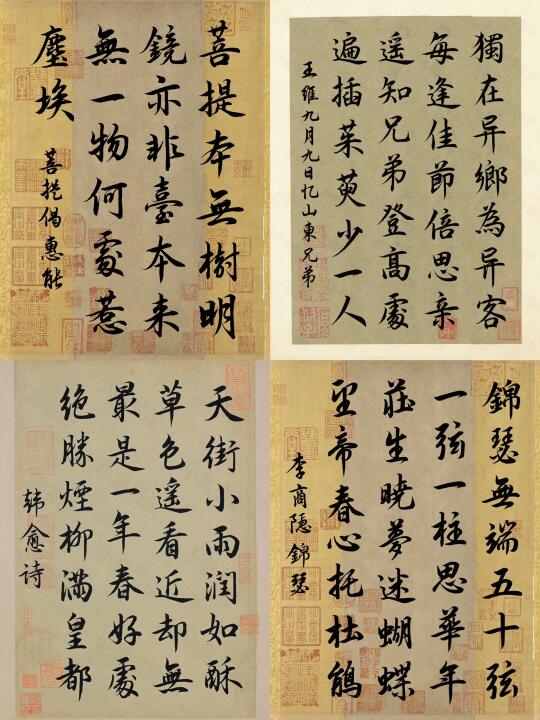 菩提本無樹明
鏡亦非臺本来
無一物何處惹
塵埃
菩提偈惠能
獨在异鄉為异客
每逢佳節倍思亲
遥知兄弟登高處
遍插茱萸少一人
王維九月九日忆山東兄弟
天街小雨润如酥
草色遥看近却無
最是一年春好處
绝勝煙柳满皇都
韩愈诗
錦瑟無端五十弦
一弦一柱思華年
莊生曉夢迷蝴蝶
望帝春心托杜鵑
李商隐錦瑟